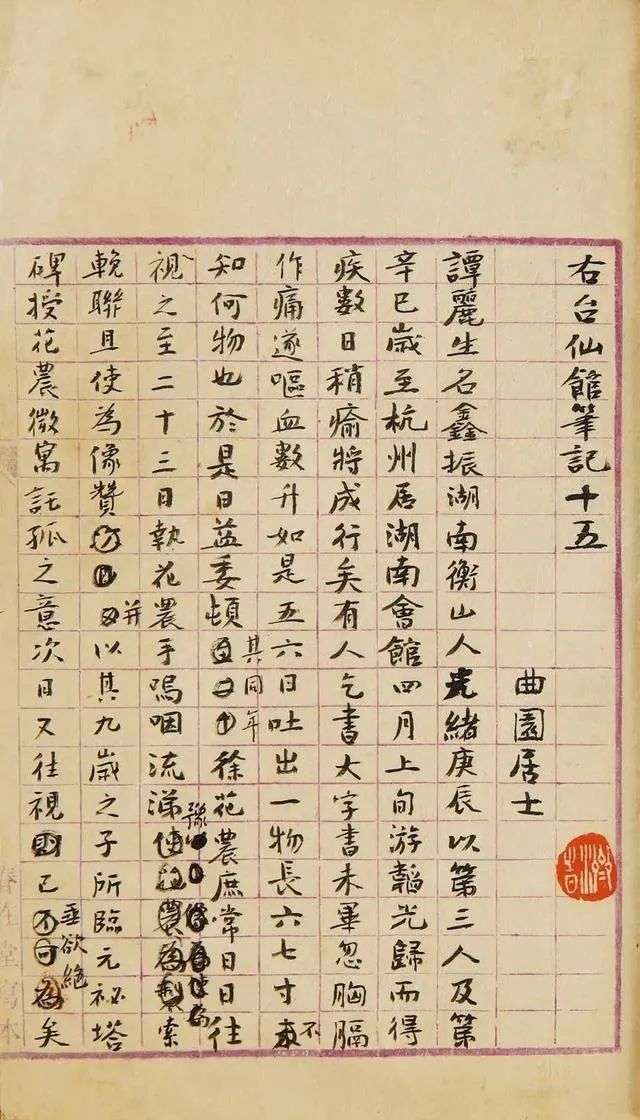 右台仙館筆記十五
曲園居士
譚麗生名鑫振湖南衡山人光緒庚辰以第三人及第
辛巳歲至杭州居湖南會館四月上旬游韜光歸而得
疾數日稍瘉將成行矣有人乞書大字書未畢忽胸膈
作痛遂嘔血數升如是五六日吐出一物長六七寸不
知何物也於是日益委頓其同年徐花農庶常日日往
視之至二十三日執花農手嗚咽流涕豫索
輓聯且使為像贊并以其九歲之子所臨元祕塔
碑授花農微寓託孤之意次日又往視已垂欲絕矣
春在堂寫本